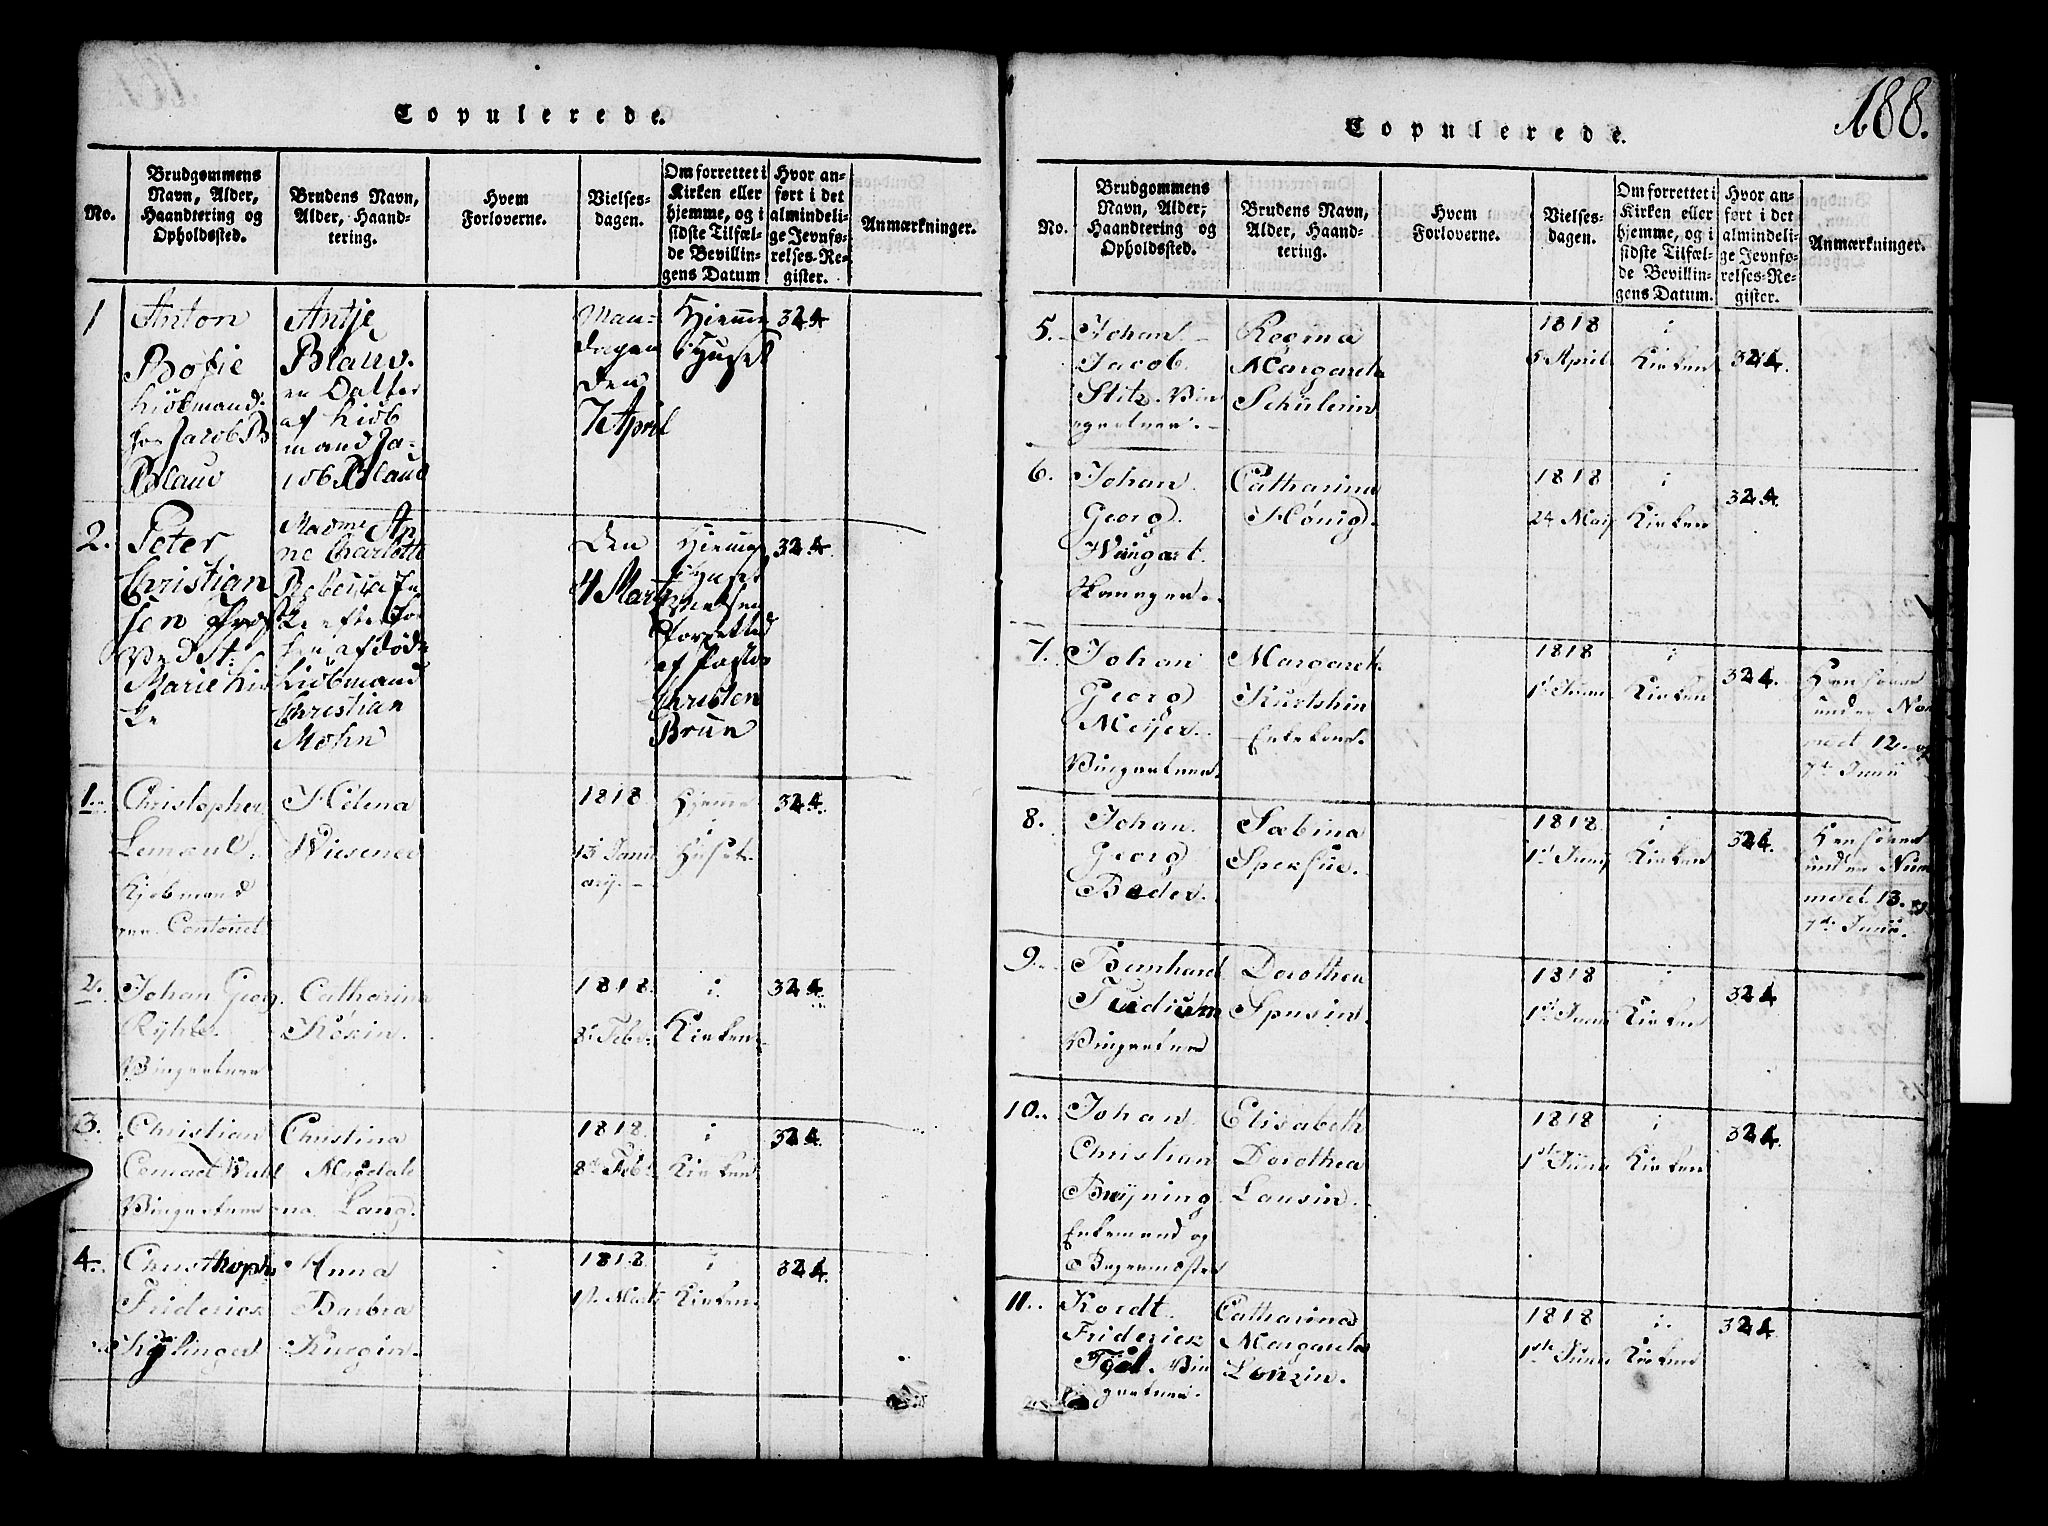 Copulerede.
No.
Brudgommens
Navn, Alder,
Haandtering og
Opholdssted.
Brudens Navn,
Alder, Haand-
tering.
Hvem
Forloverne.
Vielses-
dagen.
Om forrettet i
Kirken eller
hjemme, og i
sidste Tilfæl-
de Bevillin-
gens Datum
Hvor an-
ført i det
almindeli-
ge Jevnfø-
relses-Re-
gister.
Anmærkninger.
1
Anton
Bofie
Kiøbmand
Jacob B
Blauv
Antje
Blauv.
en Datter
af Kiøb
mand Ja-
cob Blauv
Man-
dagen
den
7 April
Hjemme
i Huset
324
2.
Peter
Christian
sen
Ved St:
Marie Kir
ke
Madme An
ne Charlotte
Rebecca En
ke efter
den afdøde
Kiøbmand
Christian
Mohn
Den
4 Marti
Hjemme
i Huset
af Pastor
Christen
Brun
324
1.
Christopher
Lemaul.
Kjøbmand
Helena
Wiesener
1818
13 Janu
ary.
Hjemme
Huset.
324.
2.
Johan Georg
Ryhle.
Vingartner
Catharina
Kösin.
1818.
8t Febr.
i
Kirken.
324
3.
Christian
Conrad Wahl
Vingartner
Christina
Magdale
na Lang.
1818.
8de Feb.
i
Kirken
324.
4.
Christhoph
Friderick
Kÿlinger
Anna
Barbra
Kurgin.
1818
1st Martz
i
Kirken.
324.
188.
Copulerede.
No.
Brudgommens
Navn, Alder,
Haandtering og
Opholdssted.
Brudens Navn,
Alder, Haand-
tering.
Hvem
Forloverne.
Vielses-
dagen.
Om forrettet i
Kirken eller
hjemme, og i
sidste Tilfæl-
de Bevillin-
gens Datum.
Hvor an-
ført i det
almindeli-
ge Jevnfø-
relses-Re-
gister.
Anmærkninger.
5.
Johan
Jacob
Stitz. Vin
gartner.
Regina
Margareta
Schülerin
1818
5 April
i
Kirken
324.
6.
Johan
Georg
Wüngart.
Catharina
Hönig.
1818
24 May
i
Kirken
324.
7.
Johan
Georg
Meijer.
Vingartner.
Margareth
Kurtshin
Enkekone.
1818
1st Junii
i
Kirken
324.
Henføres
under Nom
meret 12. og
7de Junii
8.
Johan
Georg
Bader.
Sæbina
Spersue.
1818
1st Junij
i
Kirken
324.
Henføres
under Num
meret 13.
7de Junii.
9.
Bernhard
Vingartner
Dorothea
Spusin.
1818
1st Junii
i
Kirken
324
10.
Johan
Christian
Breÿning
Enkemand og
Elisabeth
Dorothea
Lausin.
1818
1ste Junii
i
Kirken
324.
11.
Kordt
Friderick
Vin
gartner.
Catharina
Margareta
Lenzin.
1818
1ste Junii
i.
Kirken
324